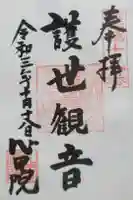 奉拝
護世観音
令和三年十月十六日